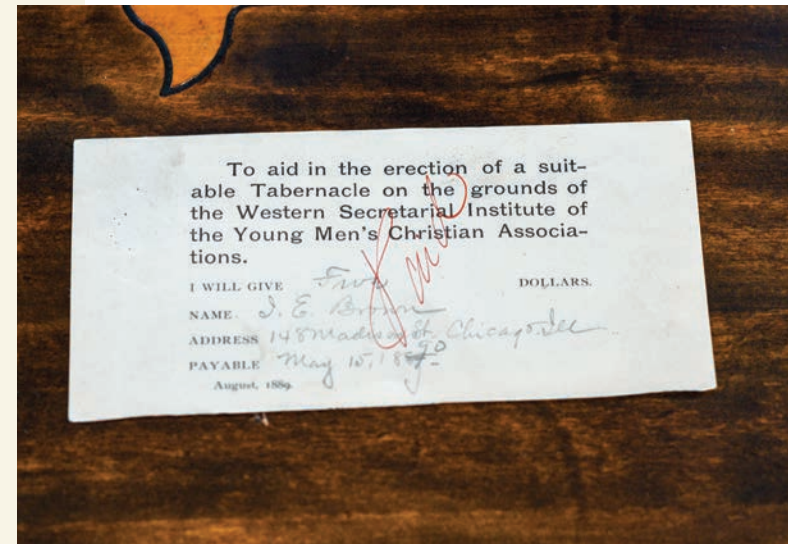 To aid in the erection of a suit-
able Tabernacle on the grounds of
the Western Secretarial Institute of
the Young Men's Christian Associa-
tions.
Paid
I WILL GIVE DOLLARS.
NAME. I. E. Brown
ADDRESS 148 Madison St. Chicago Ill
PAYABLE May 15, 1890
August, 1889.